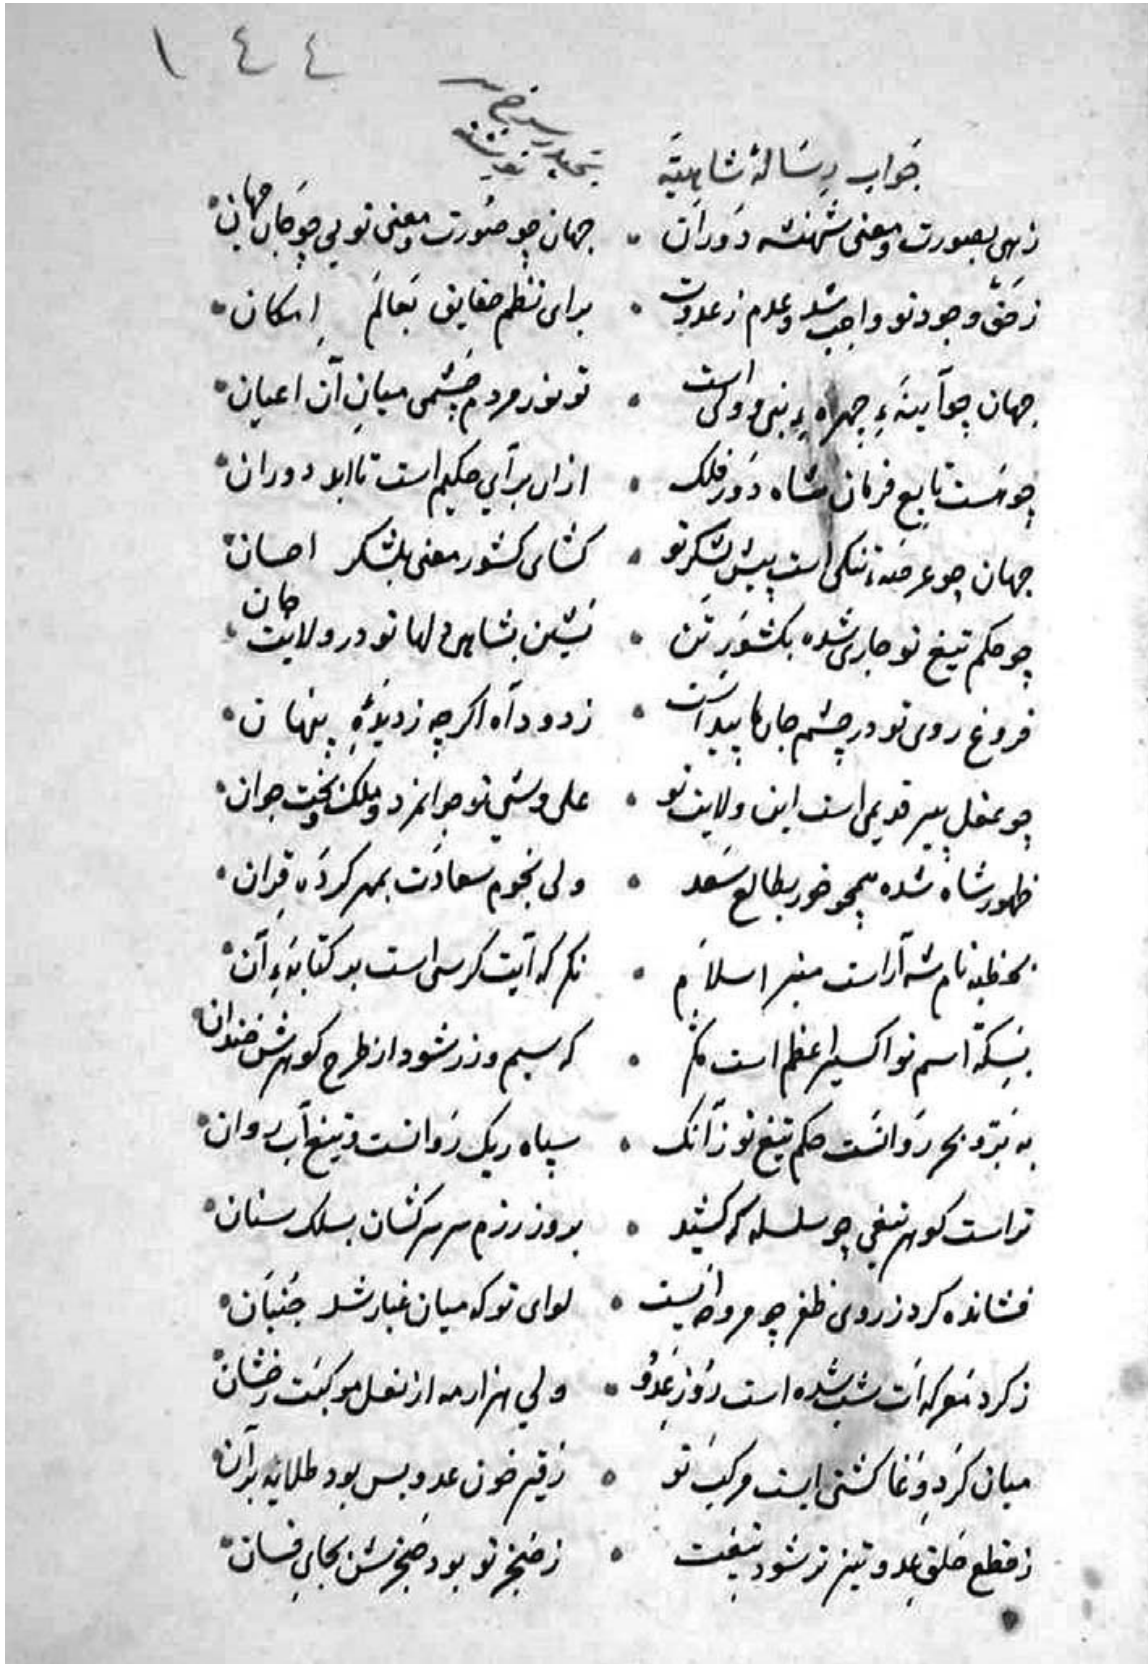 ١٤٤
جواب رسالهٔ شاهیه
زهی بصورت و معنی شهنشه دوران • جهان چو صورت و معنی تویی چو جان جهان
ز حق وجود تو واجب شد و عدم ز عدوت • برای نظم حقایق بعالم امکان
جهان چو آینهٔ چهرهٔ نبی و ولی است • تو نور مردم چشمی میان آن اعیان
چو هست تابع فرمان شاه دور فلک • ازان برای حکیم است تا ابد دوران
جهان چو عرصهٔ تنکی است پیش لشکر تو • کشای کشور معنی بلشکر احسان
چو حکم تیغ تو جاری شده بکشور تن • نشین بشاهی دلها تو در ولایت جان
فروغ روی تو در چشم جان ها پیداست • ز دود آه اکرچه ز دیدهٔ پنهان
چو عقل پیر قدیمی است این ولایت تو • علی وشی تو جوانمرد و ملک و بخت جوان
ظهور شاه شده همچو خور بطالع سعد • ولی نجوم سعادت بمهر کرده قران
بخطبه نام شه آراست منبر اسلام • نکر که آیت کرسی است بر کتابهٔ آن
بسکه اسم تو اکسیر اعظم است مکر • که سیم و زر شود از طرح کوهرش خندان
به بر و بحر روانست حکم تیغ تو زآنک • سپاه ریک روانست و تیغ آب روان
تراست کوهر تیغی چو سلسله که کشید • بروز رزم سر سرکشان بسلک سنان
فشانده کرد ز روی ظفر چو مروحه ایست • لوای تو که میان غبار شد جنبان
ز کرد معرکه ات شب شده است روز عدو • ولی هزار مه از نعل موکبت رخشان
میان کرد وغا کشتی ایست مرکب تو • ز قیر خون عدو بس بود طلایه بر آن
ز قطع حلق عدو تیزتر شود تیغت • ز خنجر تو بود حنجرش بجای فسان